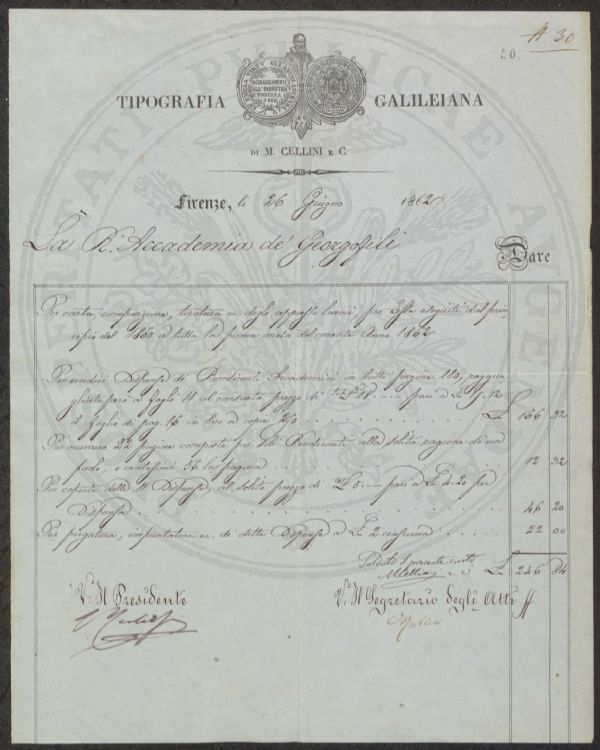 № 30
50
TIPOGRAFIA GALILEIANA
DI M. CELLINI E C.
Firenze, li 26 Giugno 1862
La R. Accademia de' Georgofili
Dare
Per carta, composizione, tiratura ec. degli appresso lavori, per Essa eseguiti dal prin
cipio del 1860 a tutta la prima metà del corrente Anno 1862
Per undici Dispense di Rendiconti Accademici in tutto pagine 183, raggua
gliate però a fogli 11 al consueto prezzo di pari a
il foglio di pag. 16 in 8vo a copie 166 32
Per numero 22 pagine composte per detti Rendiconti alla solita ragione di un
o centesimi 56 la pagina 12 32
Per coperta delle 11 Dispense, al solito prezzo di £ 5 — pari a £ 4.20 per
Dispensa 46 20
Per piegatura, ec. di dette Dispense a £ 2 ciascuna 22 00
Saldato il presente conto
MCellini £ 246 84
V. Il Presidente
V. Il Segretario degli Atti